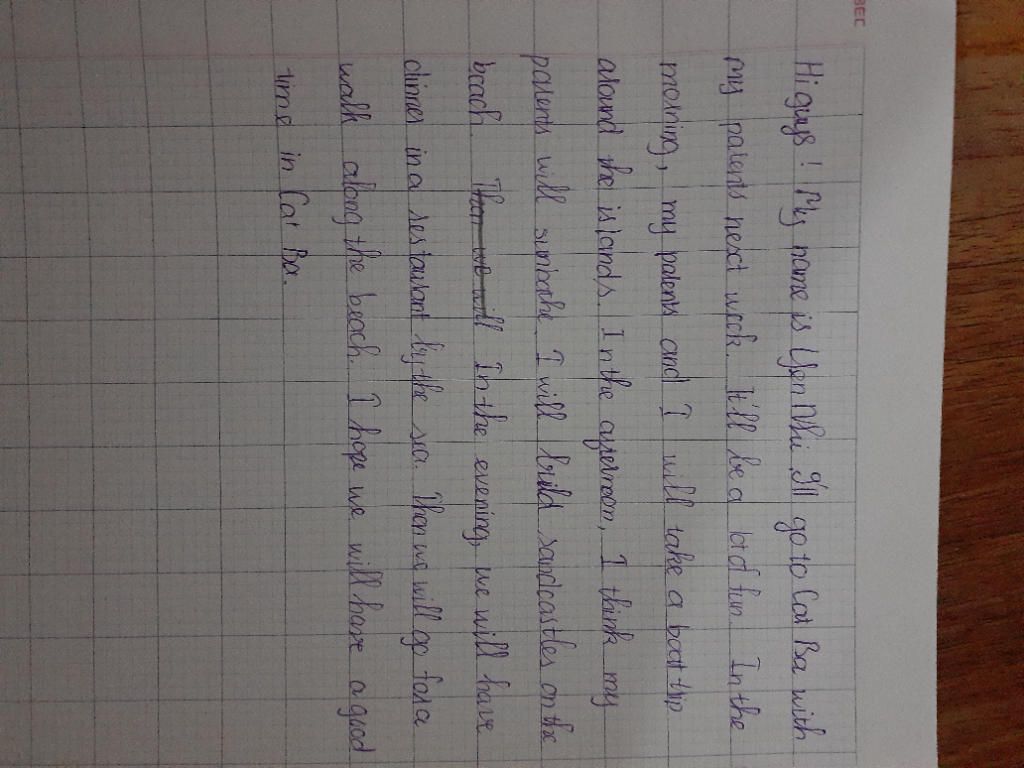 BEC
Hi guys! My name is Yen Nhi. I'll go to Cat Ba with
my parents next week. It'll be a lot of fun. In the
morning, my patents and I will take a boat trip
around the islands. In the afternoon, I think my
parents will sunbathe. I will build sandcastles on the
beach. Then we will In the evening, we will have
dinner in a restaurant by the sea. Then we will go for a
walk along the beach. I hope we will have a good
time in Cat Ba.